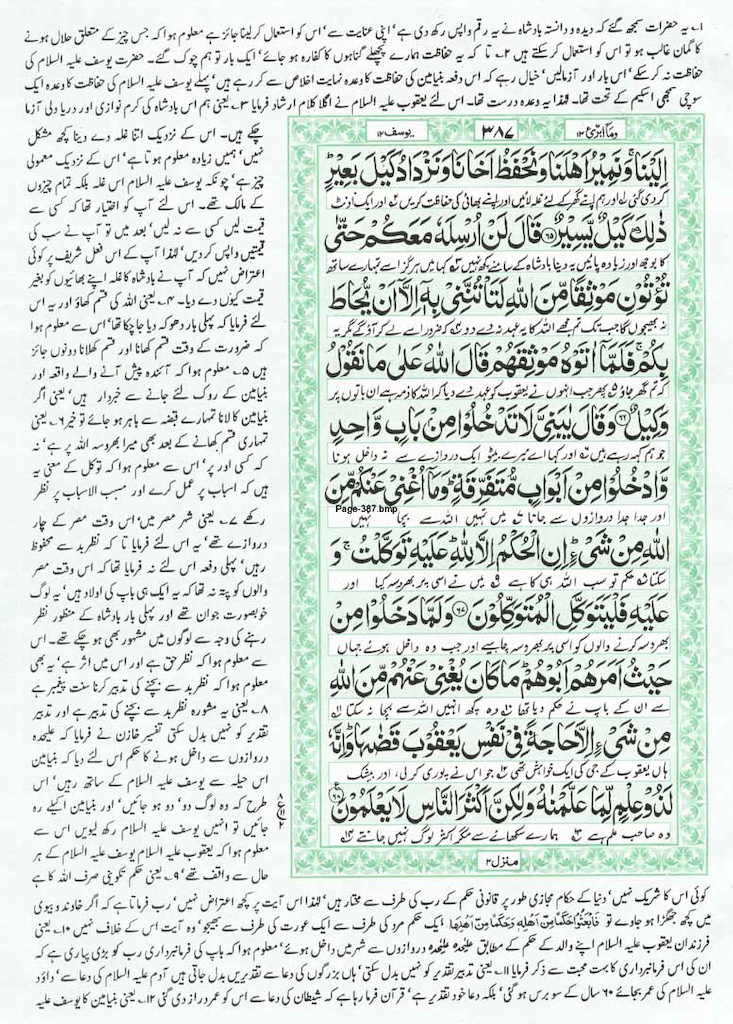 ۱۔ یہ حضرات سمجھ گئے کہ دیدہ و دانستہ بادشاہ نے یہ رقم واپس رکھ دی ہے' اپنی عنایت سے' اس کو استعمال کر لینا جائز ہے معلوم ہوا کہ جس چیز کے متعلق حلال ہونے
کا گمان غالب ہو تو اس کو استعمال کر سکتے ہیں ۲۔ تا کہ یہ حفاظت ہمارے پچھلے گناہوں کا کفارہ ہو جائے' ایک بار تو ہم چوک گئے۔ حضرت یوسف علیہ السلام کی
حفاظت نہ کر سکے' اس بار اور آزمالیں' خیال رہے کہ اس دفعہ بنیامین کی حفاظت کا وعدہ نہایت اخلاص سے کر رہے ہیں' پہلے یوسف علیہ السلام کی حفاظت کا وعدہ ایک
سوچی سمجھی اسکیم کے تحت تھا۔ لہٰذا یہ وعدہ درست تھا۔ اس لئے یعقوب علیہ السلام نے اگلا کلام ارشاد فرمایا ۳۔ یعنی ہم اس بادشاہ کی کرم نوازی اور دریا دلی آزما
چکے ہیں۔ اس کے نزدیک اتنا غلہ دے دینا کچھ مشکل
نہیں' ہمیں زیادہ معلوم ہوتا ہے' اس کے نزدیک معمولی
چیز ہے' چونکہ یوسف علیہ السلام اس غلہ بلکہ تمام چیزوں
کے مالک تھے۔ اس لئے آپ کو اختیار تھا کہ کسی سے
قیمت لیں کسی سے نہ لیں' بعد میں تو آپ نے سب کی
قیمتیں واپس کر دیں' لہٰذا آپ کے اس فعل شریف پر کوئی
اعتراض نہیں کہ آپ نے بادشاہ کا غلہ اپنے بھائیوں کو بغیر
قیمت کیوں دے دیا۔ ۴۔ یعنی اللہ کی قسم کھاؤ اور یہ اس
لئے فرمایا کہ پہلی بار دھوکہ دیا جا چکا تھا' اس سے معلوم ہوا
کہ ضرورت کے وقت قسم کھانا اور قسم کھلانا دونوں جائز
ہیں ۵۔ معلوم ہوا کہ آئندہ پیش آنے والے واقعہ اور
بنیامین کے روک لئے جانے سے خبردار ہیں' یعنی اگر
بنیامین کا لانا تمہارے قبضہ سے باہر ہو جائے تو خیر ۶۔ یعنی
تمہاری قسم کھانے کے بعد بھی میرا بھروسہ اللہ پر ہے' نہ
کہ کسی اور پر' اس سے معلوم ہوا کہ توکل کے معنی یہ
ہیں کہ اسباب پر عمل کرے اور مسبب الاسباب پر نظر
رکھے ۷۔ یعنی شہر مصر میں' اس وقت مصر کے چار
دروازے تھے' یہ اس لئے فرمایا تا کہ نظر بد سے محفوظ
رہیں' پہلی دفعہ اس لئے نہ فرمایا تھا کہ اس وقت مصر
والوں کو پتہ نہ تھا کہ یہ ایک ہی باپ کی اولاد ہیں' یہ لوگ
خوبصورت جوان تھے اور پہلی بار بادشاہ کے منظور نظر
رہنے کی وجہ سے لوگوں میں مشہور بھی ہو چکے تھے۔ اس
سے معلوم ہوا کہ نظر حق ہے اور اس میں اثر ہے' یہ بھی
معلوم ہوا کہ نظر بد سے بچنے کی تدبیر کرنا سنت پیغمبر ہے
۸۔ یعنی یہ مشورہ نظر بد سے بچنے کی تدبیر ہے اور تدبیر
تقدیر کو نہیں بدل سکتی تفسیر خازن نے فرمایا کہ علیحدہ
دروازوں سے داخل ہونے کا حکم اس لئے دیا کہ بنیامین
اس حیلہ سے یوسف علیہ السلام کے ساتھ رہیں' اس
طرح کہ وہ لوگ دو' دو ہو جائیں' اور بنیامین اکیلے رہ
جائیں تو انہیں یوسف علیہ السلام رکھ لیویں اس سے
معلوم ہوا کہ یعقوب علیہ السلام یوسف علیہ السلام کے ہر
حال سے واقف تھے' ۹۔ یعنی حکم تکوینی صرف اللہ کا ہے
وما ابرئ ۱۳
۳۸۷
یوسف ۱۲
اِلَیْنَا ۚ وَنَمِیْرُ اَهْلَنَا وَنَحْفَظُ اَخَانَا وَنَزْدَادُ كَیْلَ بَعِیْرٍ ؕ
کر دی گئی ل اور ہم اپنے گھر کے لئے غلہ لائیں اور اپنے بھائی کی حفاظت کریں ۲ اور ایک اونٹ
ذٰلِكَ كَیْلٌ یَّسِیْرٌ ﴿۶۵﴾ قَالَ لَنْ اُرْسِلَهٗ مَعَكُمْ حَتّٰی
کا بوجھ اور زیادہ پائیں یہ دینا بادشاہ کے سامنے کچھ نہیں ۳ کہا میں ہرگز اسے تمہارے ساتھ
تُؤْتُوْنِ مَوْثِقًا مِّنَ اللّٰهِ لَتَاْتُنَّنِیْ بِهٖۤ اِلَّاۤ اَنْ یُّحَاطَ
نہ بھیجوں گا جب تک تم مجھے اللہ کا یہ عہد نہ دے دو ۴ کہ ضرور اسے لے کر آؤ گے مگر یہ
بِكُمْ ۚ فَلَمَّاۤ اٰتَوْهُ مَوْثِقَهُمْ قَالَ اللّٰهُ عَلٰی مَا نَقُوْلُ
کہ تم گھر جاؤ ۵ پھر جب انہوں نے یعقوب کو عہد دے دیا کہا اللہ کا ذمہ ہے ان باتوں پر
وَكِیْلٌ ﴿۶۶﴾ وَقَالَ یٰبَنِیَّ لَا تَدْخُلُوْا مِنْۢ بَابٍ وَّاحِدٍ
جو ہم کہہ رہے ہیں ۶ اور کہا اے میرے بیٹو ایک دروازے سے نہ داخل ہونا
وَّادْخُلُوْا مِنْ اَبْوَابٍ مُّتَفَرِّقَةٍ ؕ وَمَاۤ اُغْنِیْ عَنْكُمْ مِّنَ
اور جدا جدا دروازوں سے جانا ۷ میں تمہیں اللہ سے بچا نہیں
Page-387.bmp
اللّٰهِ مِنْ شَیْءٍ ؕ اِنِ الْحُكْمُ اِلَّا لِلّٰهِ ؕ عَلَیْهِ تَوَكَّلْتُ ۚ وَ
سکتا ۸ حکم تو سب اللہ ہی کا ہے ۹ میں نے اسی پر بھروسہ کیا اور
عَلَیْهِ فَلْیَتَوَكَّلِ الْمُتَوَكِّلُوْنَ ﴿۶۷﴾ وَلَمَّا دَخَلُوْا مِنْ
بھروسہ کرنے والوں کو اسی پر بھروسہ چاہیے اور جب وہ داخل ہوئے جہاں
حَیْثُ اَمَرَهُمْ اَبُوْهُمْ ؕ مَا كَانَ یُغْنِیْ عَنْهُمْ مِّنَ اللّٰهِ
سے ان کے باپ نے حکم دیا تھا ۱۰ وہ کچھ انہیں اللہ سے بچا نہ سکتا ۱۱
مِنْ شَیْءٍ اِلَّا حَاجَةً فِیْ نَفْسِ یَعْقُوْبَ قَضٰىهَا ؕ وَاِنَّهٗ
ہاں یعقوب کے جی کی ایک خواہش تھی ۱۲ جو اس نے پوری کر لی، اور بیشک
لَذُوْ عِلْمٍ لِّمَا عَلَّمْنٰهُ وَلٰكِنَّ اَكْثَرَ النَّاسِ لَا یَعْلَمُوْنَ ﴿۶۸﴾
وہ صاحب علم ہے ۱۳ ہمارے سکھائے سے مگر اکثر لوگ نہیں جانتے ۱۴
منزل ۳
کوئی اس کا شریک نہیں' دنیا کے حکام مجازی طور پر قانونی حکم کے رب کی طرف سے مختار ہیں' لہٰذا اس آیت پر کچھ اعتراض نہیں' رب فرماتا ہے کہ اگر خاوند و بیوی
میں کچھ جھگڑا ہو جاوے تو فَابْعَثُوْا حَكَمًا مِّنْ اَهْلِهٖ وَحَكَمًا مِّنْ اَهْلِهَا ایک حکم مرد کی طرف سے ایک عورت کی طرف سے بھیجو' وہ آیت اس کے خلاف نہیں ۱۰۔ یعنی
فرزندان یعقوب علیہ السلام اپنے والد کے حکم کے مطابق علیحدہ علیحدہ دروازوں سے شہر میں داخل ہوئے' معلوم ہوا کہ باپ کی فرمانبرداری رب کو بڑی پیاری ہے کہ
ان کی اس فرمانبرداری کا بہت محبت سے ذکر فرمایا ۱۱۔ یعنی تدبیر تقدیر کو نہیں بدل سکتی' ہاں بزرگوں کی دعا سے تقدیریں بدل جاتی ہیں آدم علیہ السلام کی دعا سے' داؤد
علیہ السلام کی عمر بجائے ۶۰ سال کے سو برس ہو گئی' بلکہ دعا خود تقدیر ہے' قرآن فرما رہا ہے کہ شیطان کی دعا سے اس کو عمر دراز دی گئی ۱۲۔ یعنی بنیامین کا یوسف علیہ